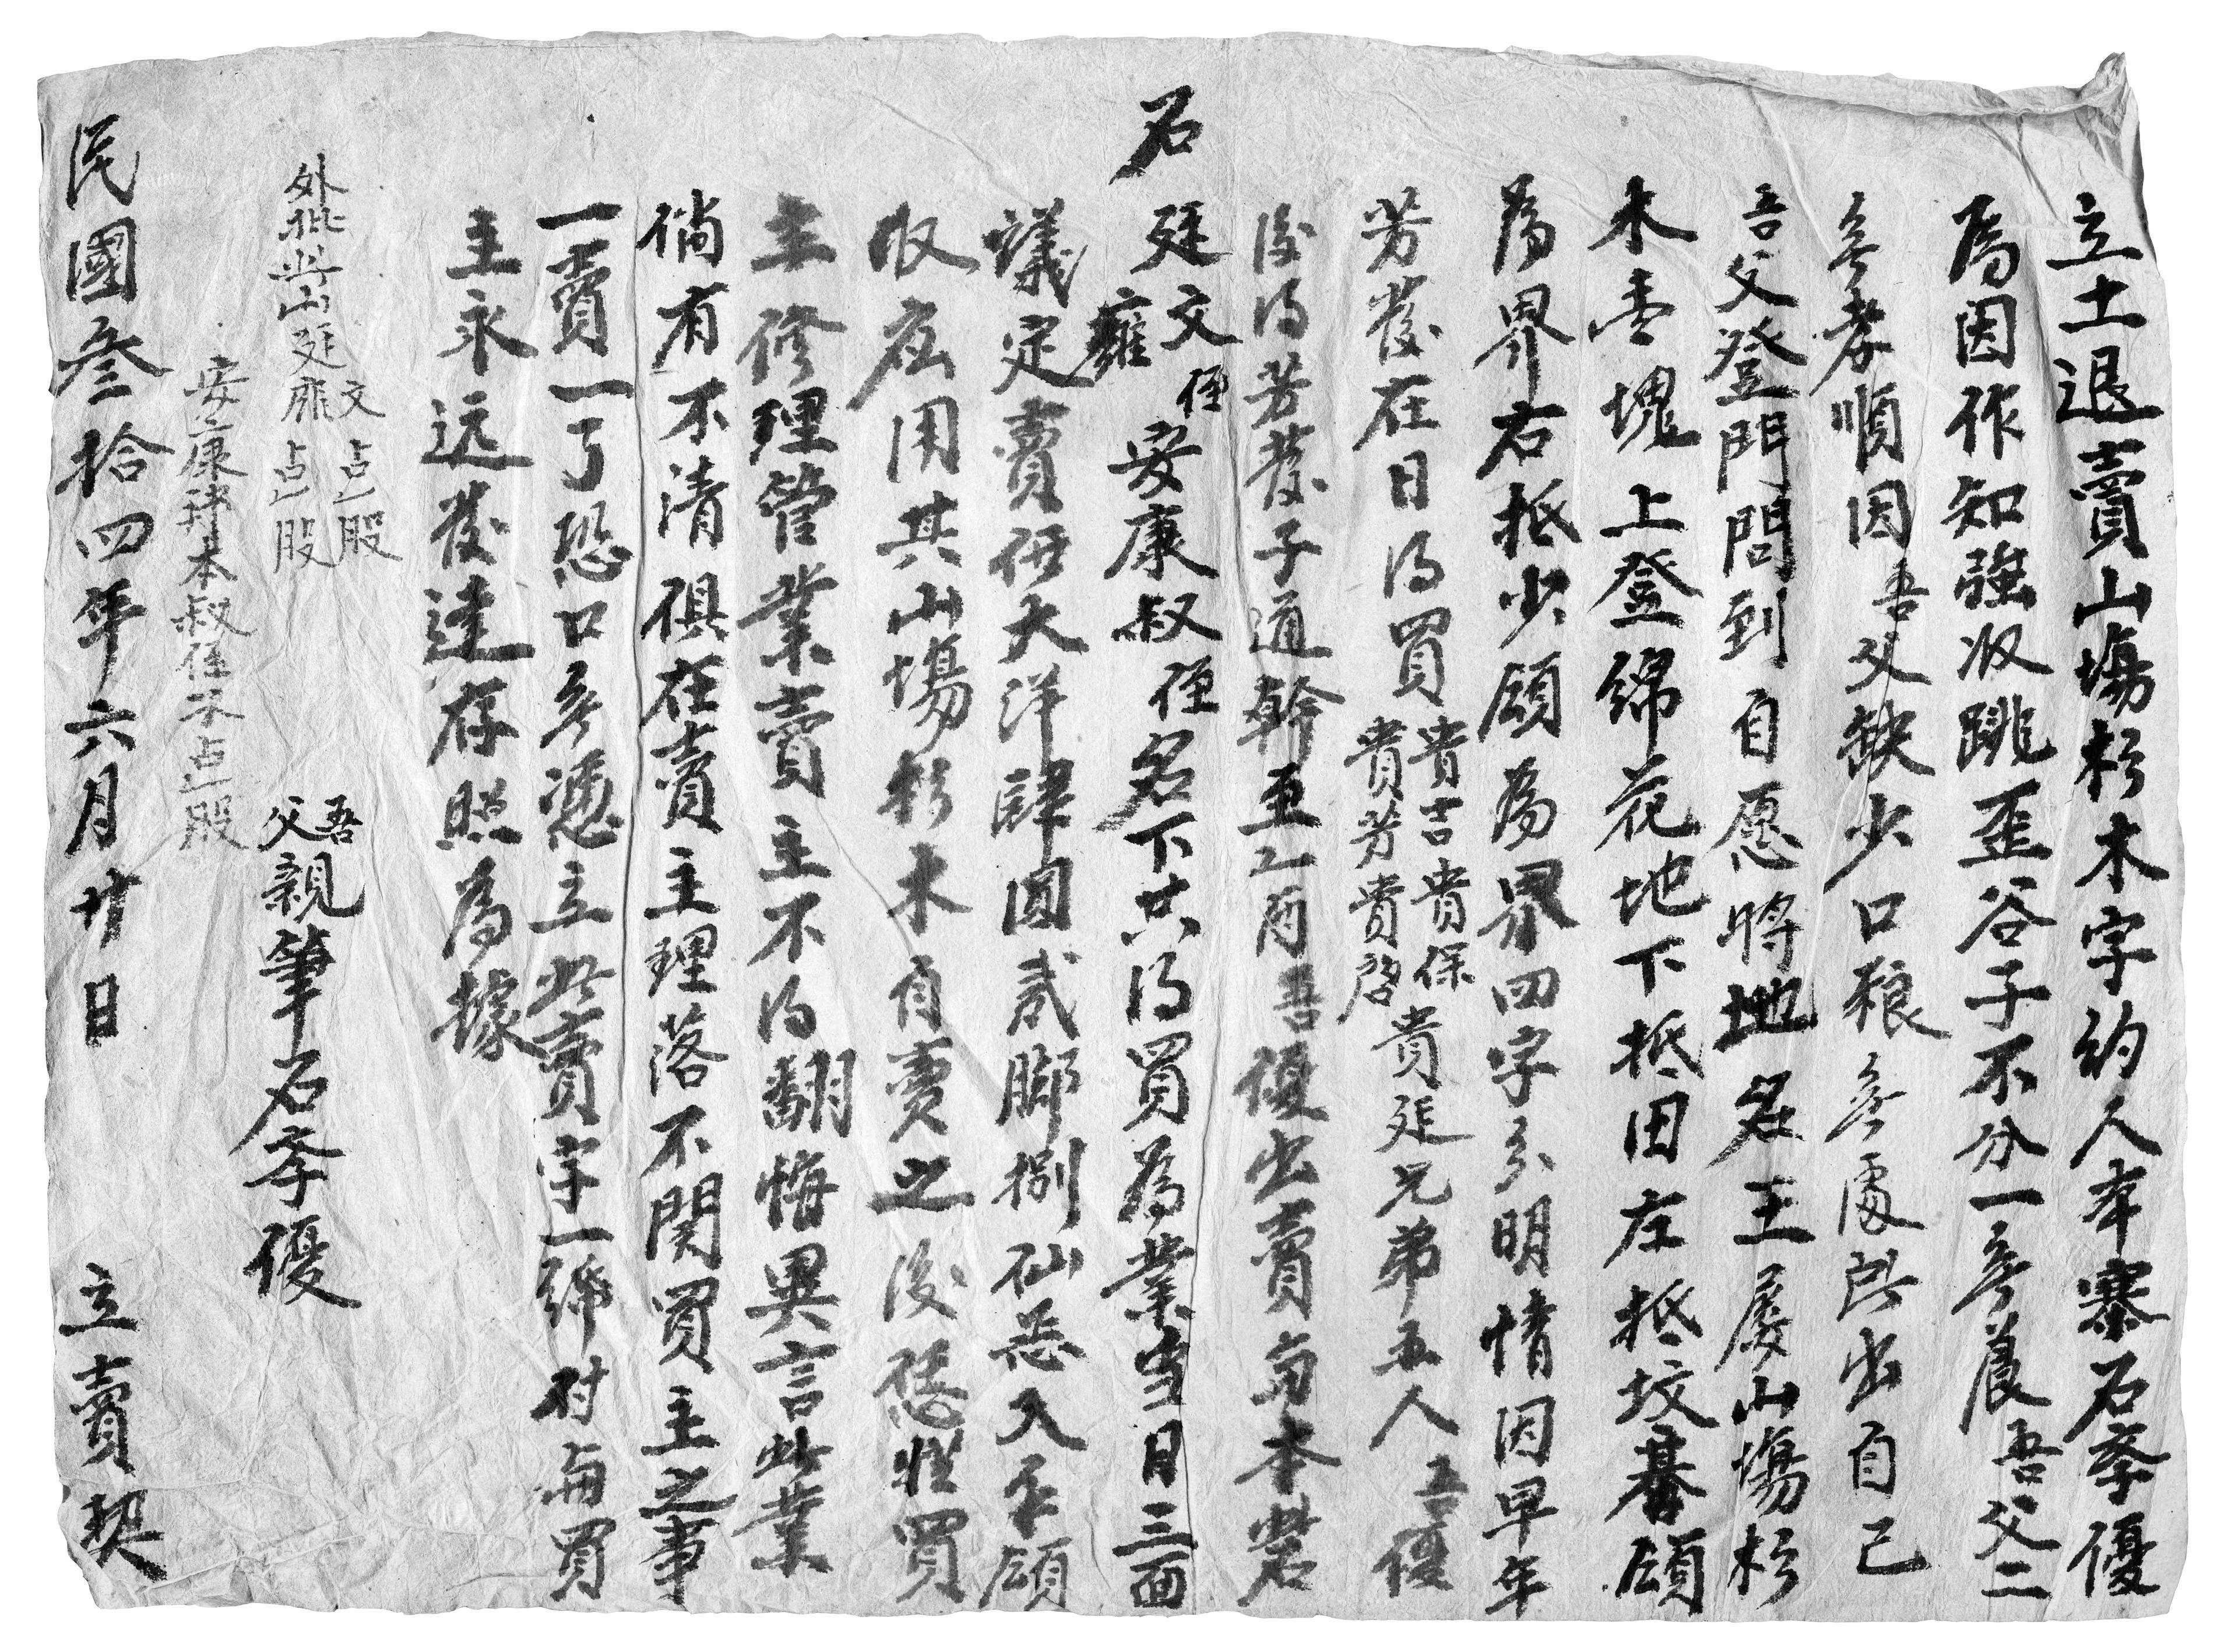 立土退賣山塲杉木字約人本寨石孝優
為因作知強收跳歪谷子不分一無晨吾父二
無孝順因吾父缺少口粮無處所出自己
吾父登門問到自愿將地名王屡山塲杉
木壹塊上登綿花地下抵田左抵坟墓領
為界右抵少領為界四字分明情因早年
芳發在日得買貴吉貴保貴芳貴啓貴延兄弟五人吾優
後得芳發子通幹至乙酉吾優出賣與本寨
石廷文雍侄安康叔侄名下共得買為業当日三面
議定賣価大洋肆圓贰脚捌仙忎入手領
收应用其山塲杉木自賣之後恁憑買
主修理管業賣主不得翻悔異言此業
倘有不清俱在賣主理落不関買主之事
一賣一了恐口無憑立此賣字一紙付與買
主永远發達存照為據
外批此山廷文占一股雍占一股
安康
本叔侄禾占一股
吾父親筆石孝優
民國叁拾四年六月廿日 立賣契